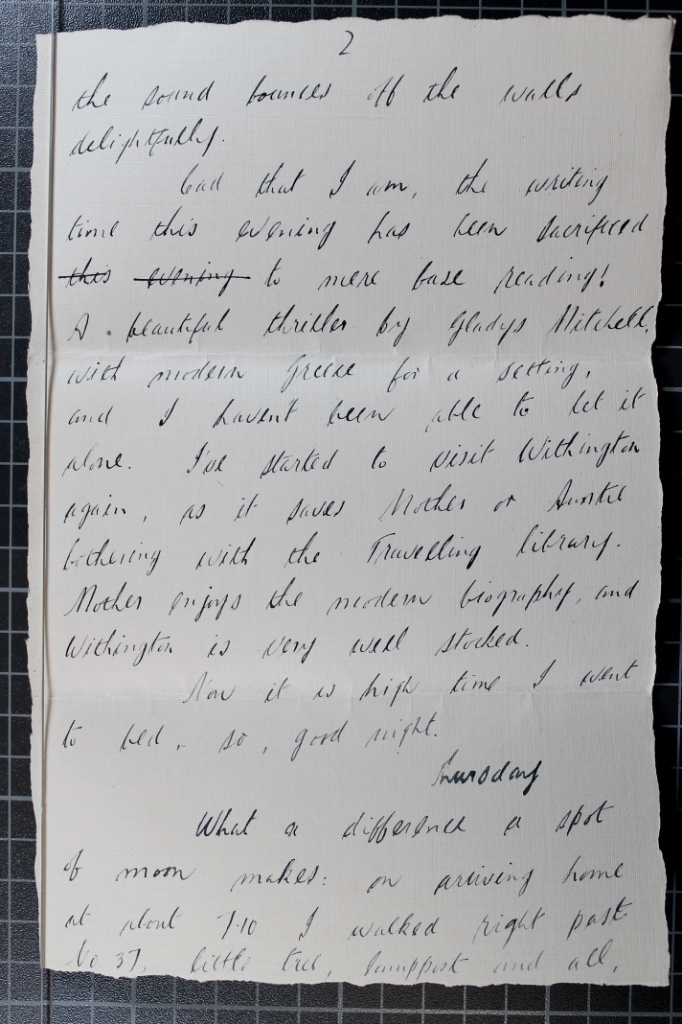 2
the sound bounces off the walls
delightfully.
Cad that I am, the writing
time this evening has been sacrificed
this evening to mere base reading!
A beautiful thriller by Gladys Mitchell,
with modern Greece for a setting,
and I havent been able to let it
alone. I've started to visit Withington
again, as it saves Mother or Auntie
bothering with the Travelling library.
Mother enjoys the modern biography, and
Withington is very well stocked.
Now it is high time I went
to bed, so, good night.
Thursday
What a difference a spot
of moon makes: on arriving home
at about 7.10 I walked right past
No 37, little tree, lamppost and all,